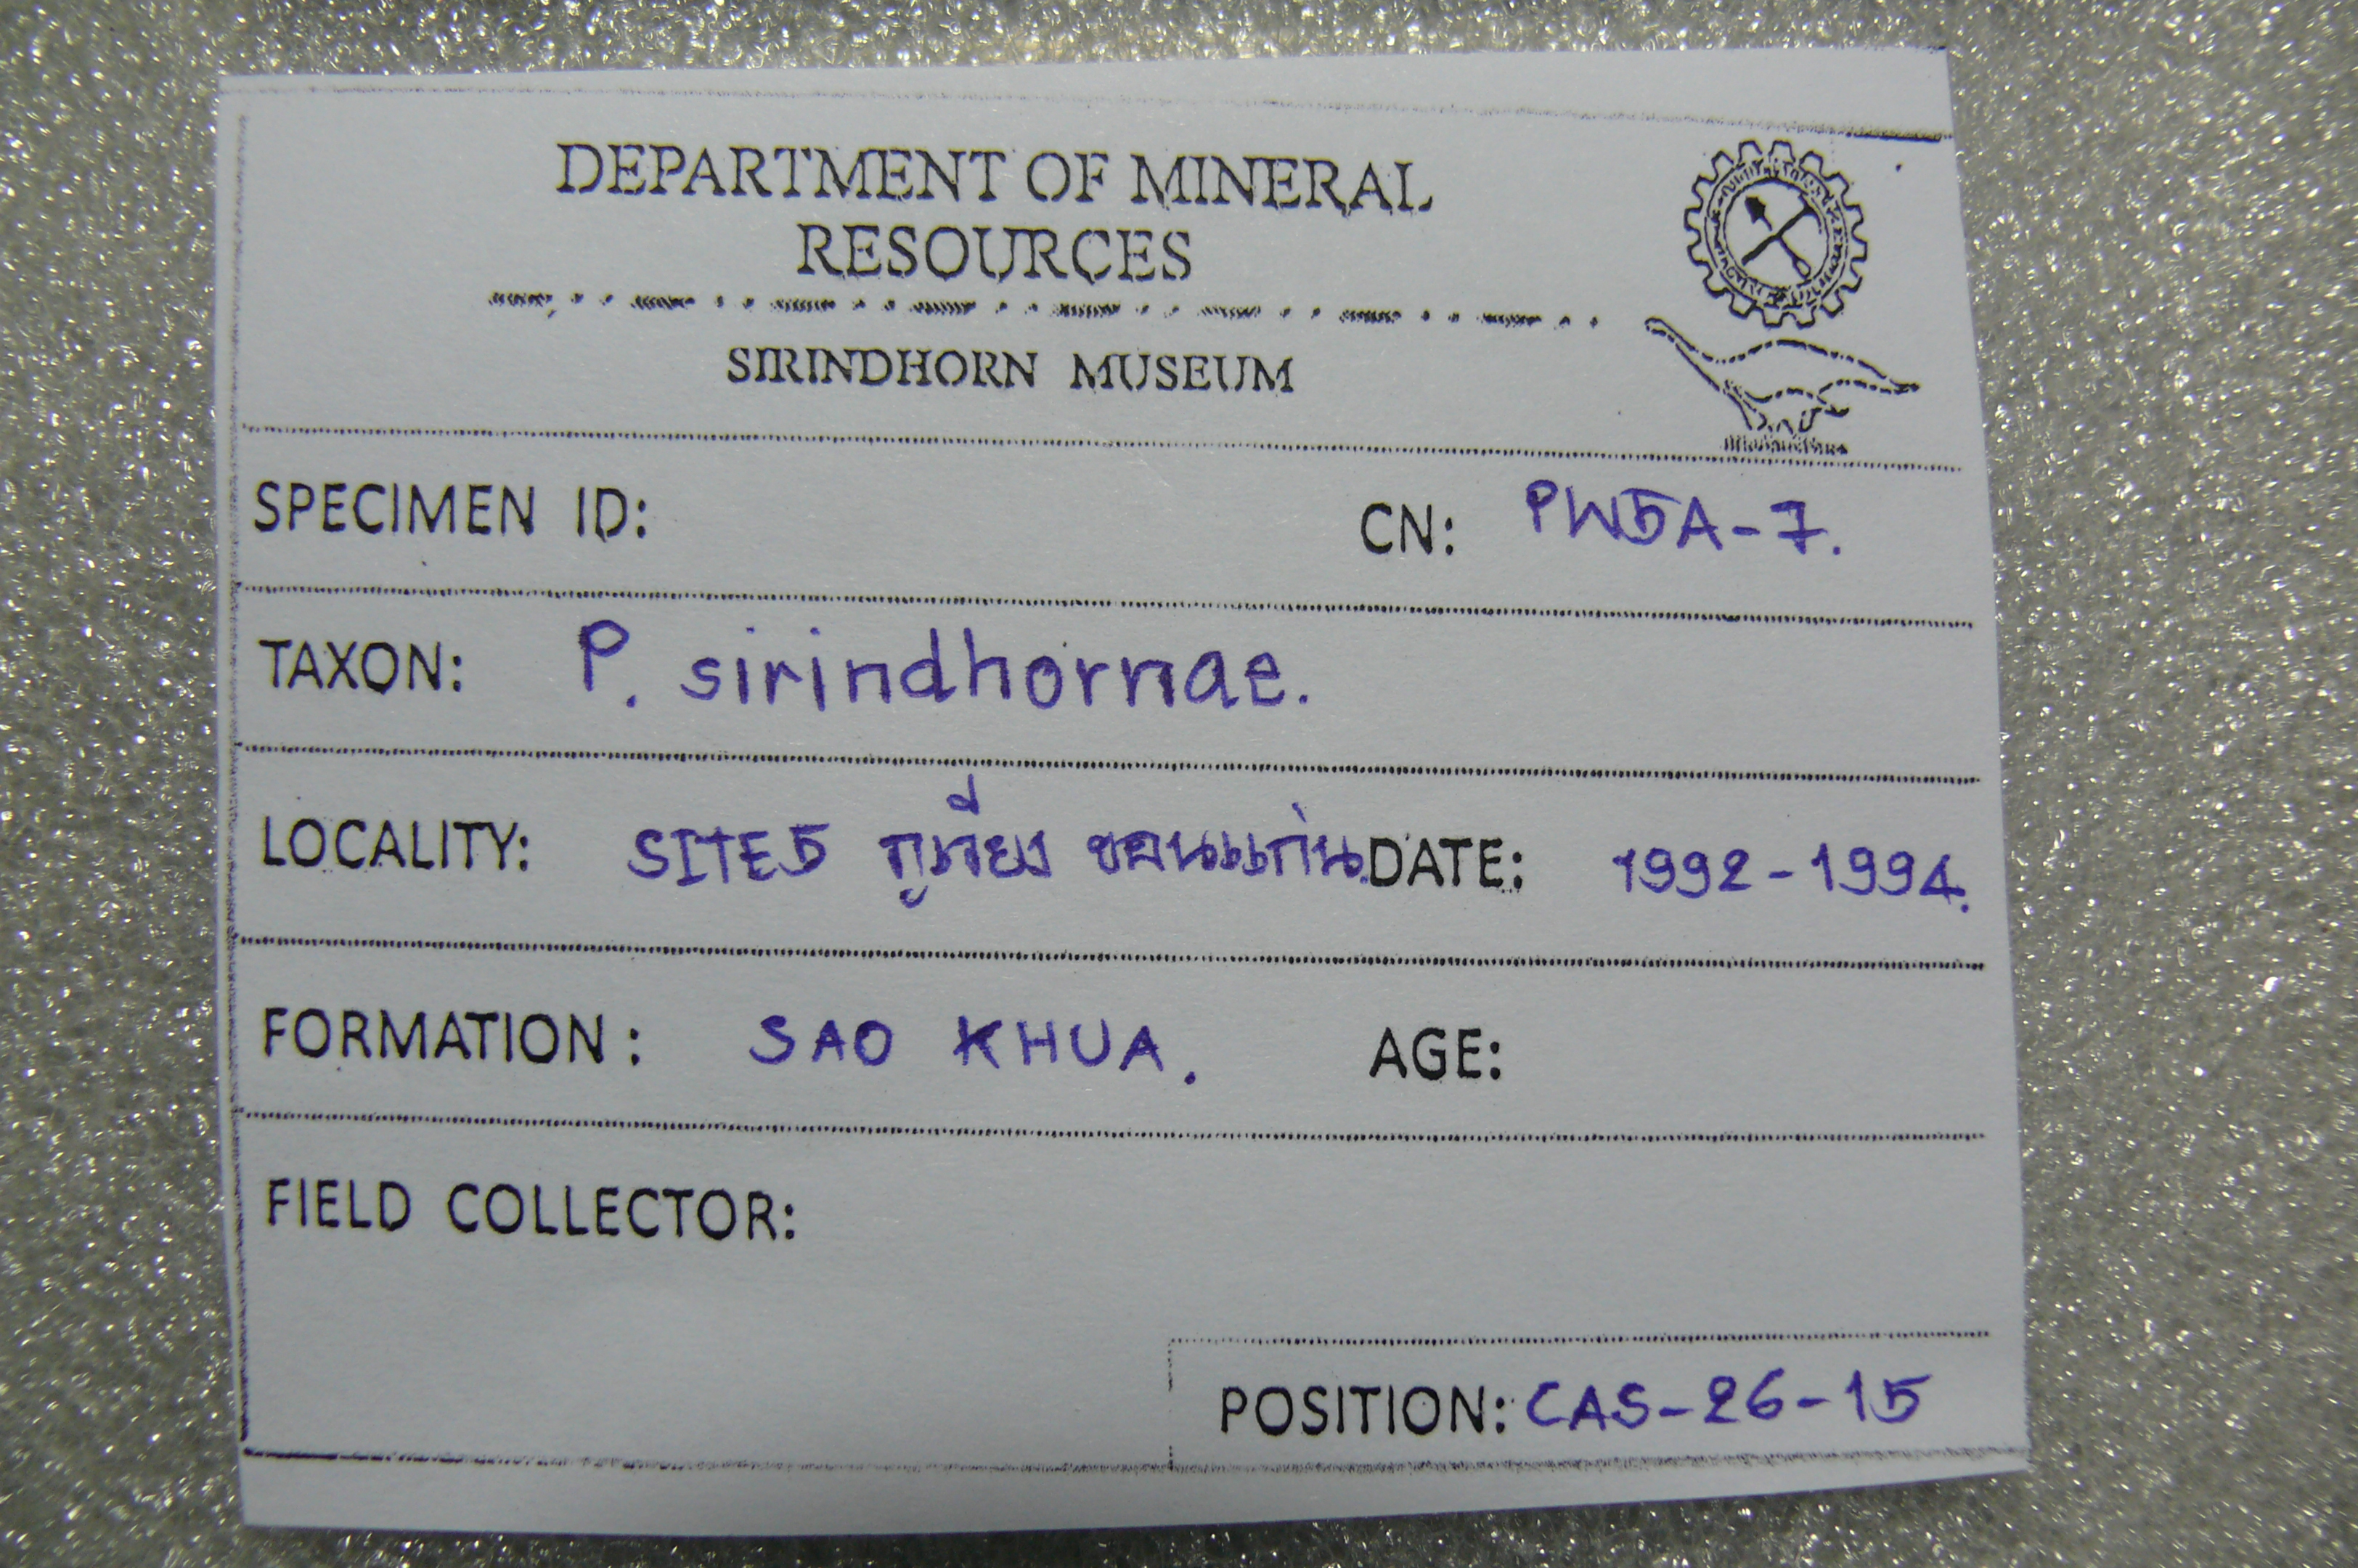 DEPARTMENT OF MINERAL
RESOURCES
SIRINDHORN MUSEUM
SPECIMEN ID: CN: PW5A-7.
TAXON: P. sirindhornae.
LOCALITY: SITE5 ภูเวียง ขอนแก่น. DATE: 1992-1994.
FORMATION: SAO KHUA. AGE:
FIELD COLLECTOR:
POSITION: CAS-26-15